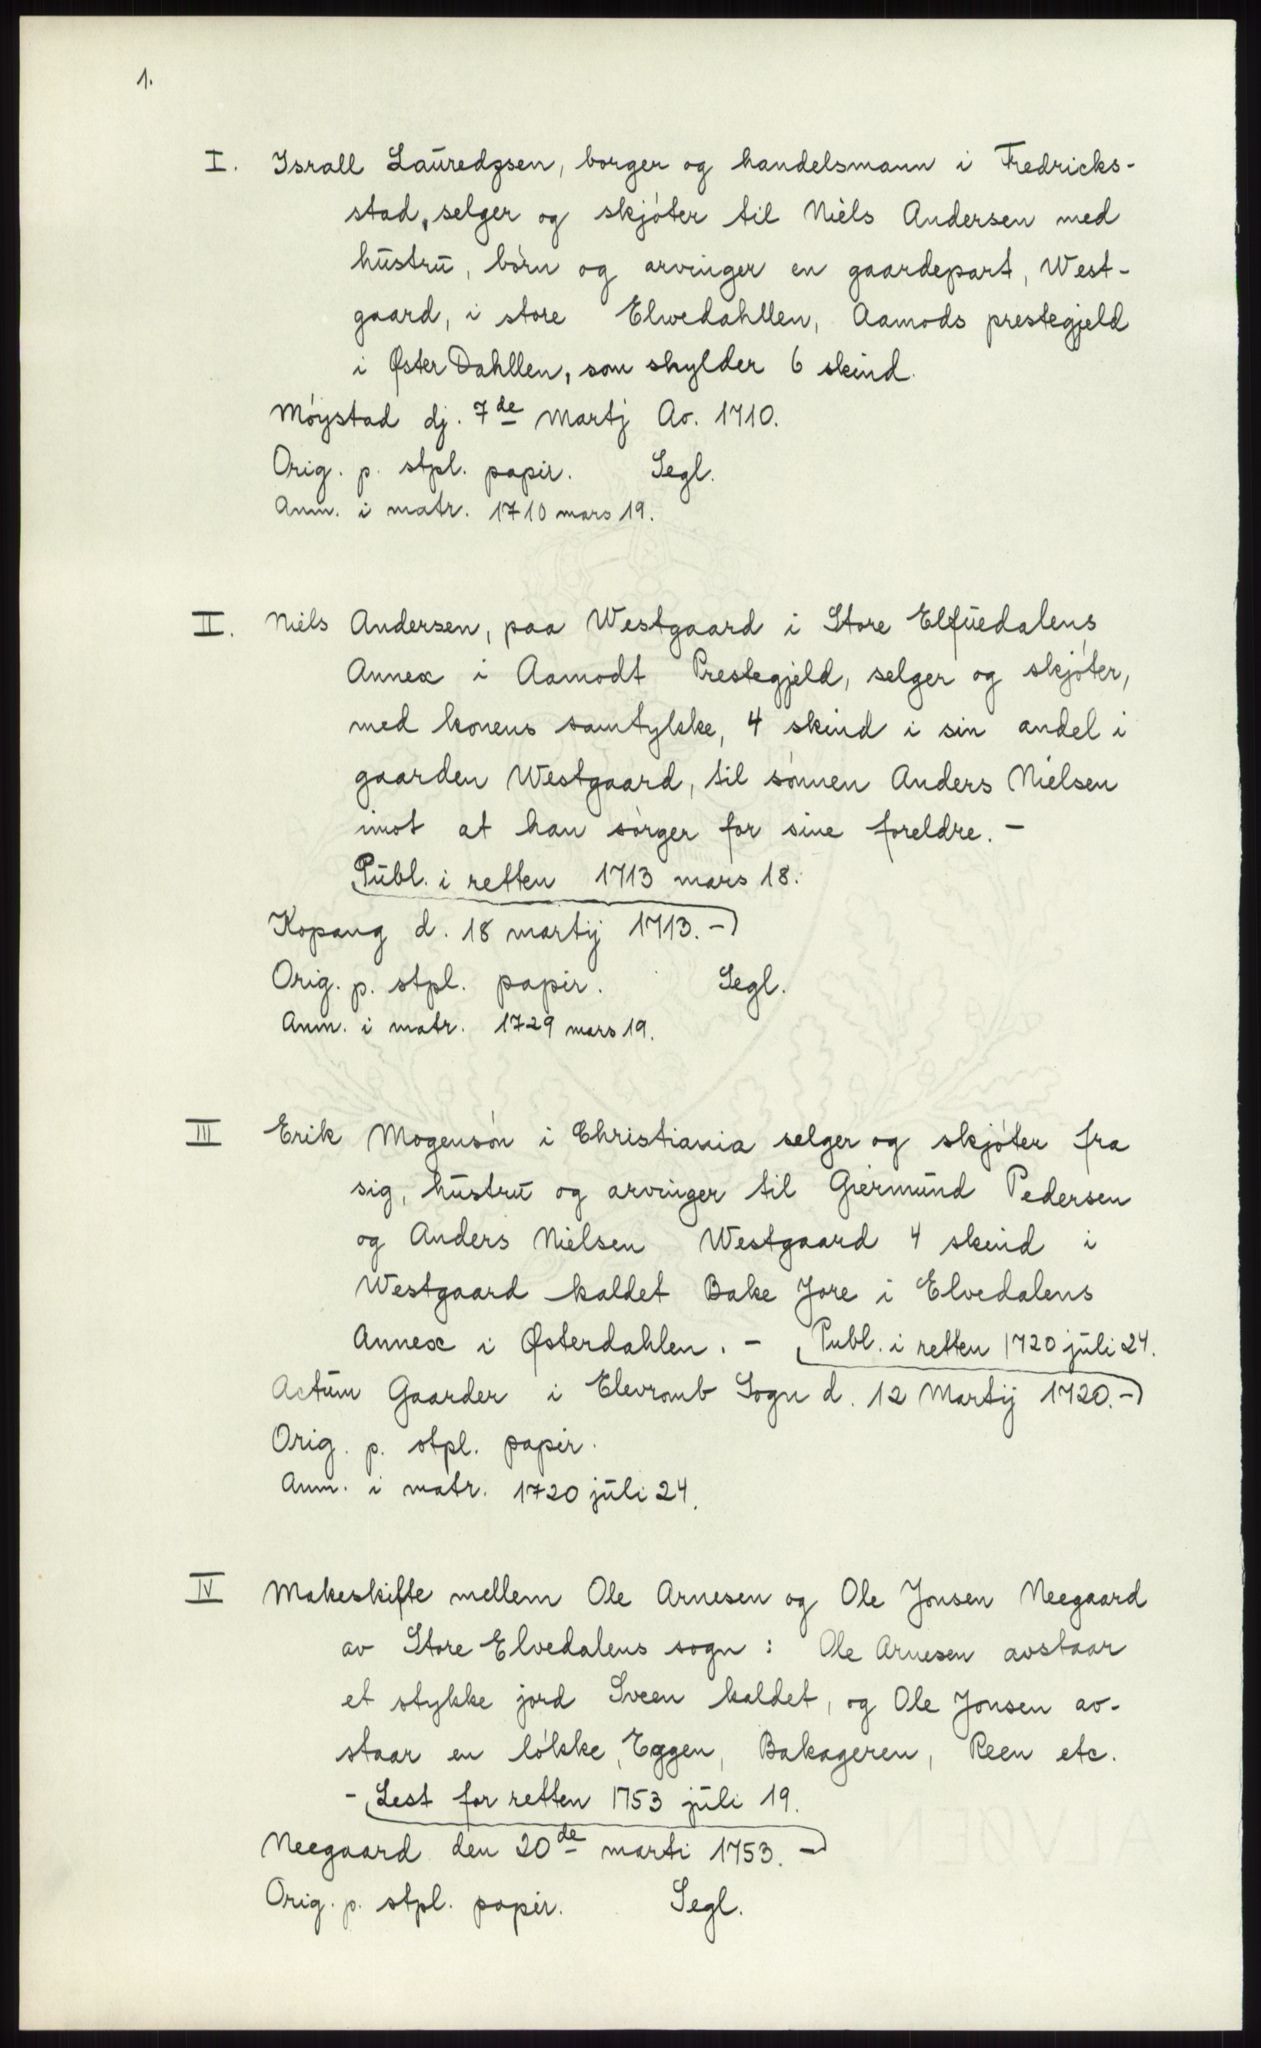 1.
I. Israll Lauredzsen, borger og handelsmann i Fredricks-
stad, selger og skjóter til Niels Andersen med
hustru, børn og arvinger en gaardepart, West-
gaard, i store Elwedahllen, Aamods prestegjeld
i Øster Dahllen, som skylder 6 skind.
Móystad dj. 7de Martj Ao. 1710.
Orig. p. stpl. papir. Segl.
Anm. i matr. 1710 mars 19.
II. Niels Andersen, paa Westgaard i Store Elfuedalens
Annex i Aamodt Prestegjeld, selger og skjóter,
med konens samtykke, 4 skind i sin andel i
gaarden Westgaard, til sónnen Anders Nielsen
imot at han sórger for sine foreldre. -
Publ. i retten 1713 mars 18.
Kopang d. 18 martij 1713. -)
Orig. p. stpl. papir. Segl.
Anm. i matr. 1729 mars 19.
III Erik Mogensón i Christiania selger og skjóter fra
sig, hustru og arvinger til Giermund Pedersen
og Anders Nielsen Westgaard 4 skind i
Westgaard kaldet Bake Jore i Elvedalens
Annex i Østerdahlen. - Publ. i retten 1720 juli 24.
Actum Gaarder i Elevromb Sogn d. 12 Martij 1720. -)
Orig. p. stpl. papir.
Anm. i matr. 1720 juli 24.
IV Makeskifte mellem Ole Arnesen og Ole Jonsen Neegaard
av Store Elvedalens sogn: Ole Arnesen avstaar
et stykke jord Sveen kaldet, og Ole Jonsen av-
staar en lókke, Eggen, Bakageren, Reen etc.
- Lest for retten 1753 juli 19.
Neegaard den 20de marti 1753. -)
Orig. p. stpl. papir. Segl.